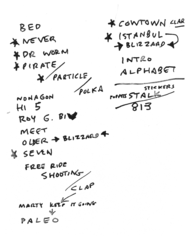 BED
* NEVER
* DR WORM
* PIRATE
* PARTICLE
POLKA
NONAGON
HI 5
ROY G. BIV
MEET
OLDER → BLIZZARD
* SEVEN
FREE RIDE
SHOOTING
CLAP
MARTY KEEP IT GOING
PALEO
* COWTOWN CLAP
* ISTANBUL
→ BLIZZARD
INTRO
ALPHABET
STICKERS
STALK
813